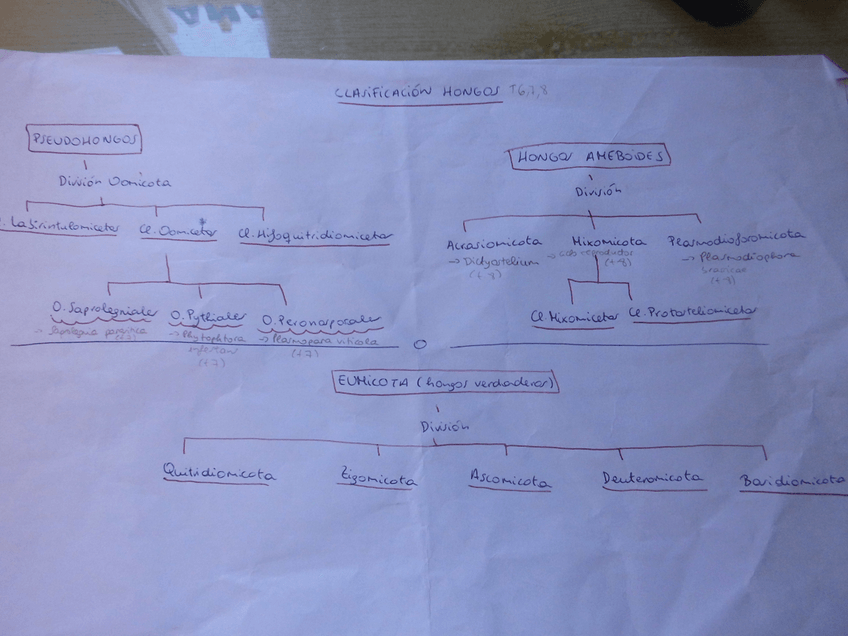 CLASIFICACIÓN HONGOS T6,7,8
PSEUDOHONGOS
División Oomicota
Cl. Oomicetes
Cl. Hifoquitridiomicetes
O. Saprolegniales
→ Saprolegnia parasitica
O. Pythiales
→ Phytophtora
infestans
(t7)
O. Peronosporales
→ Plasmopara viticola
(t7)
HONGOS AMEBOIDES
División
Acrasiomicota
→ Dictyostelium
Mixomicota
Plasmodioforomicota
→ Plasmodiophora
brasicae
Cl. Mixomicetes
Cl. Protosteliomicetes
EUMICOTA (hongos verdaderos)
División
Quitidiomicota
Zigomicota
Ascomicota
Deuteromicota
Basidiomicota